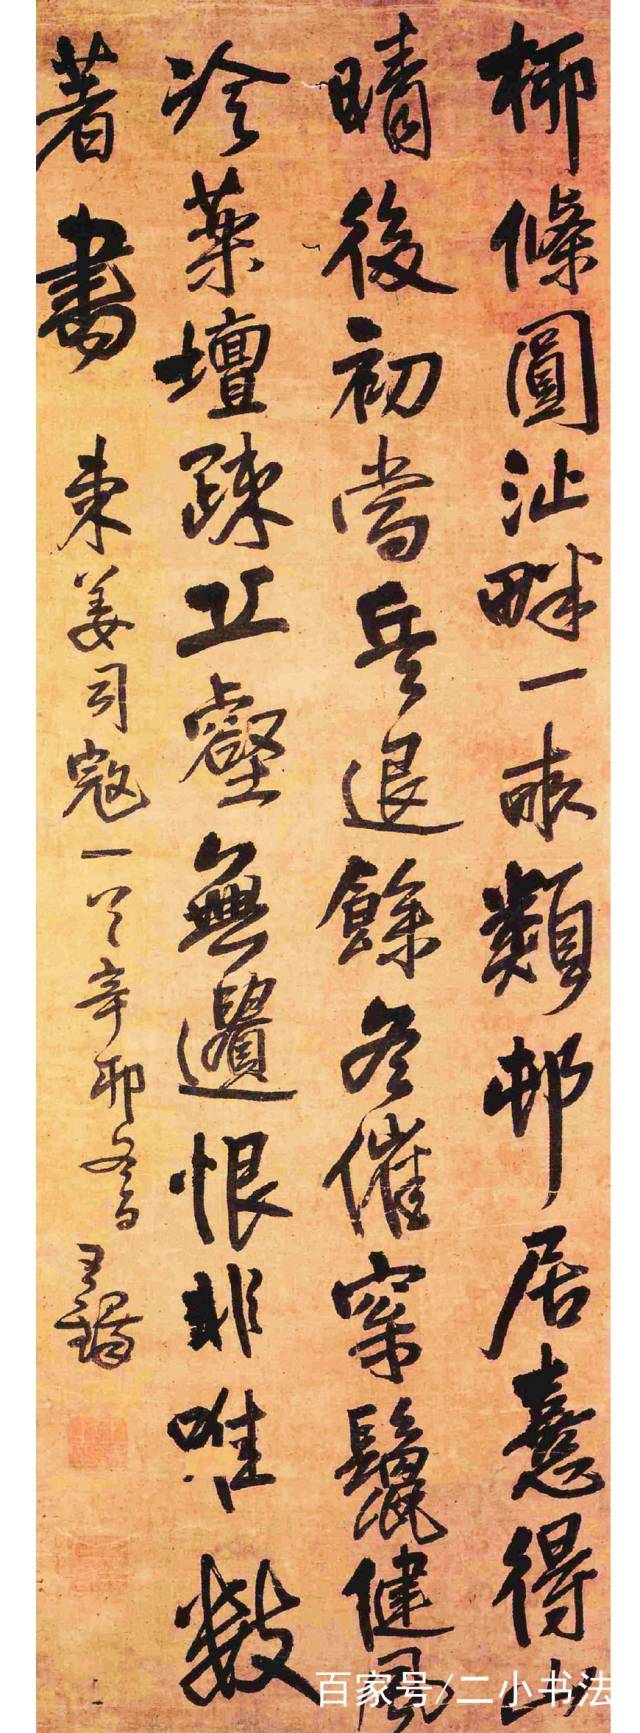 柳條圓沚畔一類邨居意得山
晴後初當兵退餘冬催鬣健風
冷藥壇疎丘壑無遺恨非唯數
著書 東姜司寇一笑辛卯冬 王鐸
百家号/二小书法